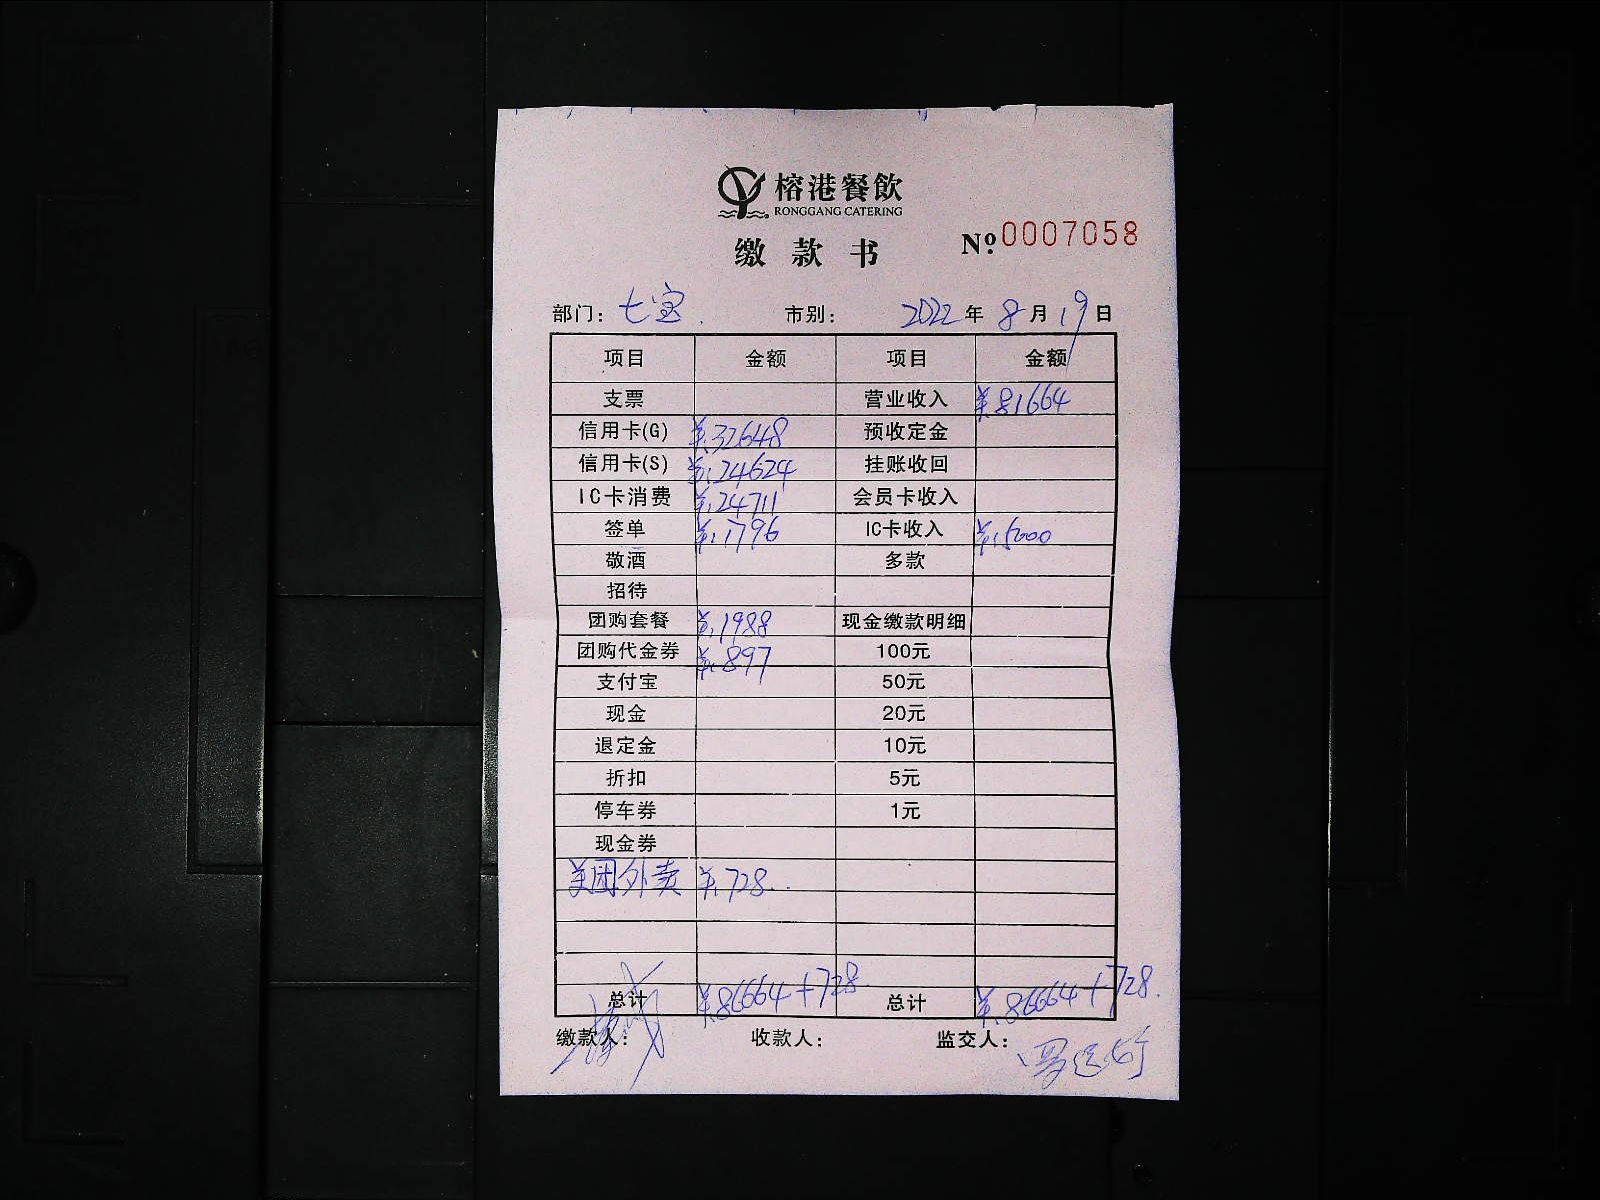 榕港餐飲
RONGGANG CATERING
缴款书
№ 0007058
部门: 七宝. 市别: 2022年8月19日
项目 金额 项目 金额
支票 营业收入 ¥.81664
信用卡(G) ¥.32648 预收定金
信用卡(S) ¥.24624 挂账收回
IC卡消费 ¥.24711 会员卡收入
签单 ¥.1796 IC卡收入 ¥.5000
敬酒 多款
招待
团购套餐 ¥.1988 现金缴款明细
团购代金券 ¥.897 100元
支付宝 50元
现金 20元
退定金 10元
折扣 5元
停车券 1元
现金券
美团外卖 ¥.728..
总计 ¥.86664+728. 总计 ¥.86664+728.
缴款人: 收款人: 监交人: